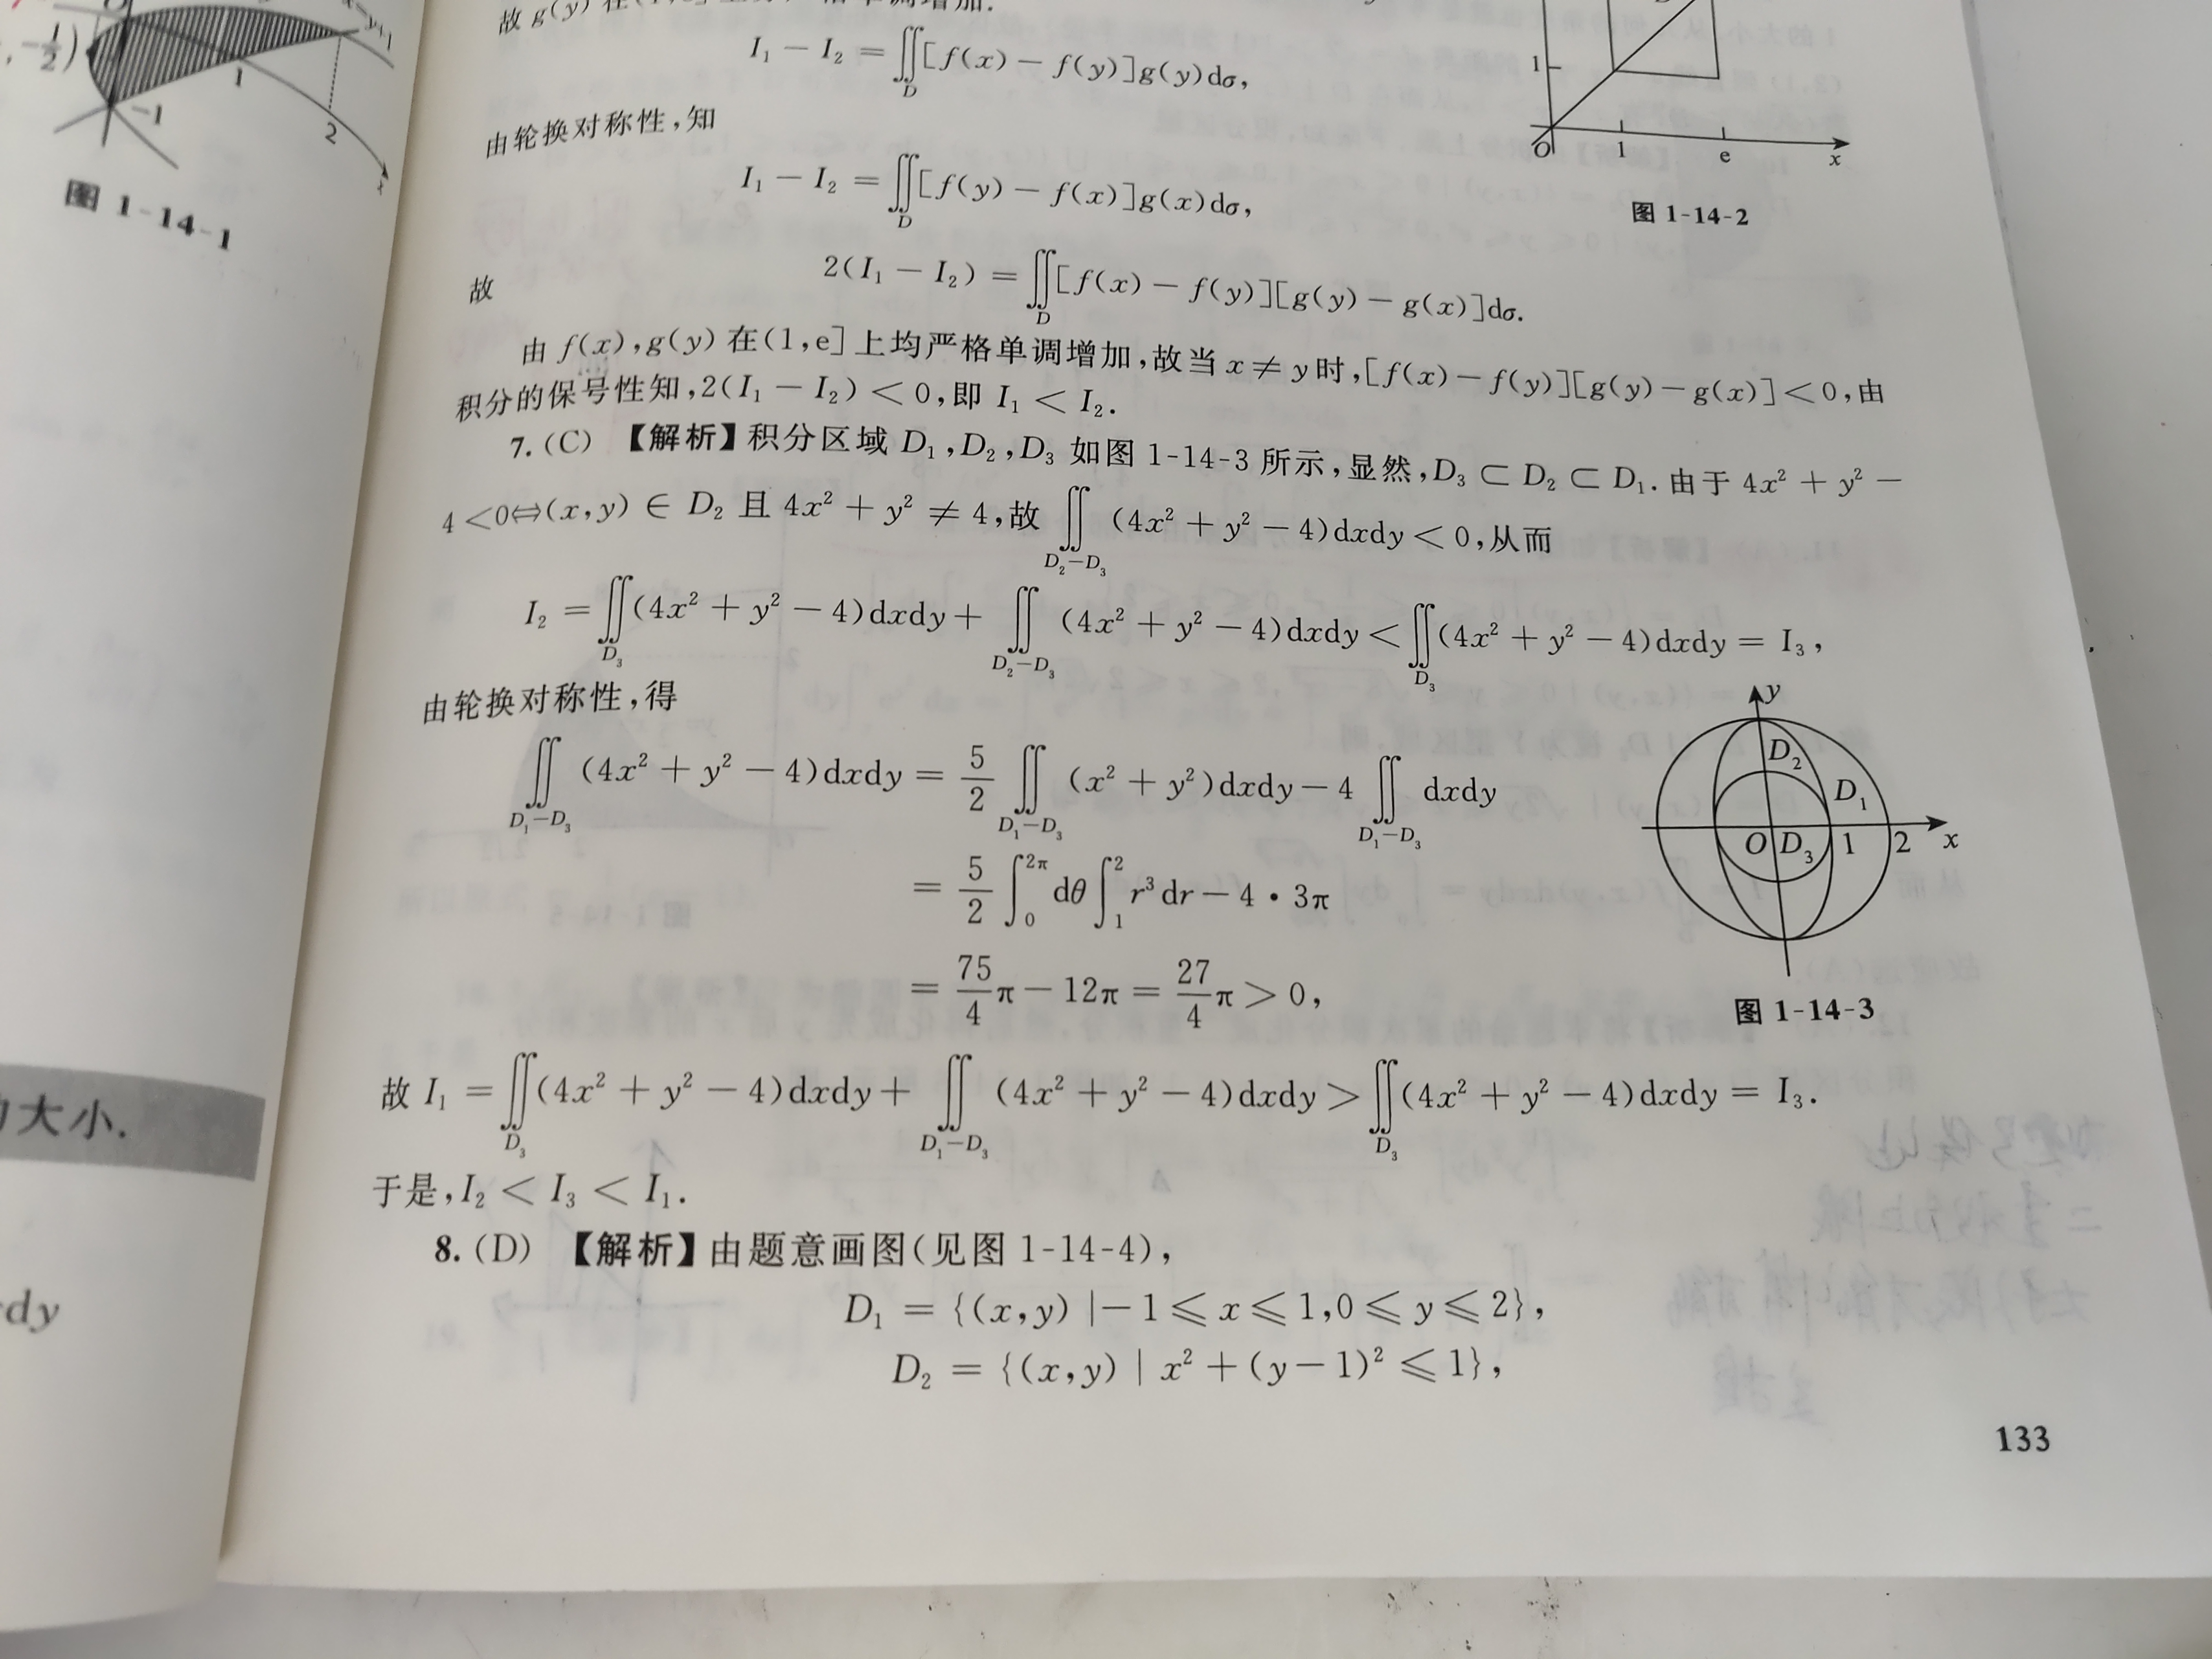 -1/2)
1
-1
2
图 1-14-1
大小.
dy
I₁ − I₂ = ∬_D [f(x) − f(y)]g(y)dσ,
由轮换对称性,知
I₁ − I₂ = ∬_D [f(y) − f(x)]g(x)dσ,
故 2(I₁ − I₂) = ∬_D [f(x) − f(y)][g(y) − g(x)]dσ.
1
O 1 e x
图 1-14-2
由 f(x),g(y) 在(1,e] 上均严格单调增加,故当 x ≠ y 时,[f(x) − f(y)][g(y) − g(x)] < 0,由
积分的保号性知,2(I₁ − I₂) < 0,即 I₁ < I₂.
7. (C) 【解析】积分区域 D₁,D₂,D₃ 如图 1-14-3 所示,显然,D₃ ⊂ D₂ ⊂ D₁. 由于 4x² + y² −
4 <0⇔(x,y) ∈ D₂ 且 4x² + y² ≠ 4,故 ∬_{D₂−D₃} (4x² + y² − 4)dxdy < 0,从而
I₂ = ∬_{D₃} (4x² + y² − 4)dxdy + ∬_{D₂−D₃} (4x² + y² − 4)dxdy < ∬_{D₃} (4x² + y² − 4)dxdy = I₃,
由轮换对称性,得
∬_{D₁−D₃} (4x² + y² − 4)dxdy = 5/2 ∬_{D₁−D₃} (x² + y²)dxdy − 4 ∬_{D₁−D₃} dxdy
= 5/2 ∫₀^{2π} dθ ∫₁² r³ dr − 4 • 3π
= 75/4 π − 12π = 27/4 π > 0,
y
D₂
D₁
O D₃ 1 2 x
图 1-14-3
故 I₁ = ∬_{D₃} (4x² + y² − 4)dxdy + ∬_{D₁−D₃} (4x² + y² − 4)dxdy > ∬_{D₃} (4x² + y² − 4)dxdy = I₃.
于是,I₂ < I₃ < I₁.
8. (D) 【解析】由题意画图(见图 1-14-4),
D₁ = {(x,y) | −1 ≤ x ≤ 1,0 ≤ y ≤ 2},
D₂ = {(x,y) | x² + (y − 1)² ≤ 1},
133